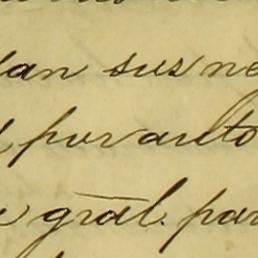 lan sus ne
por auto
grāl. par